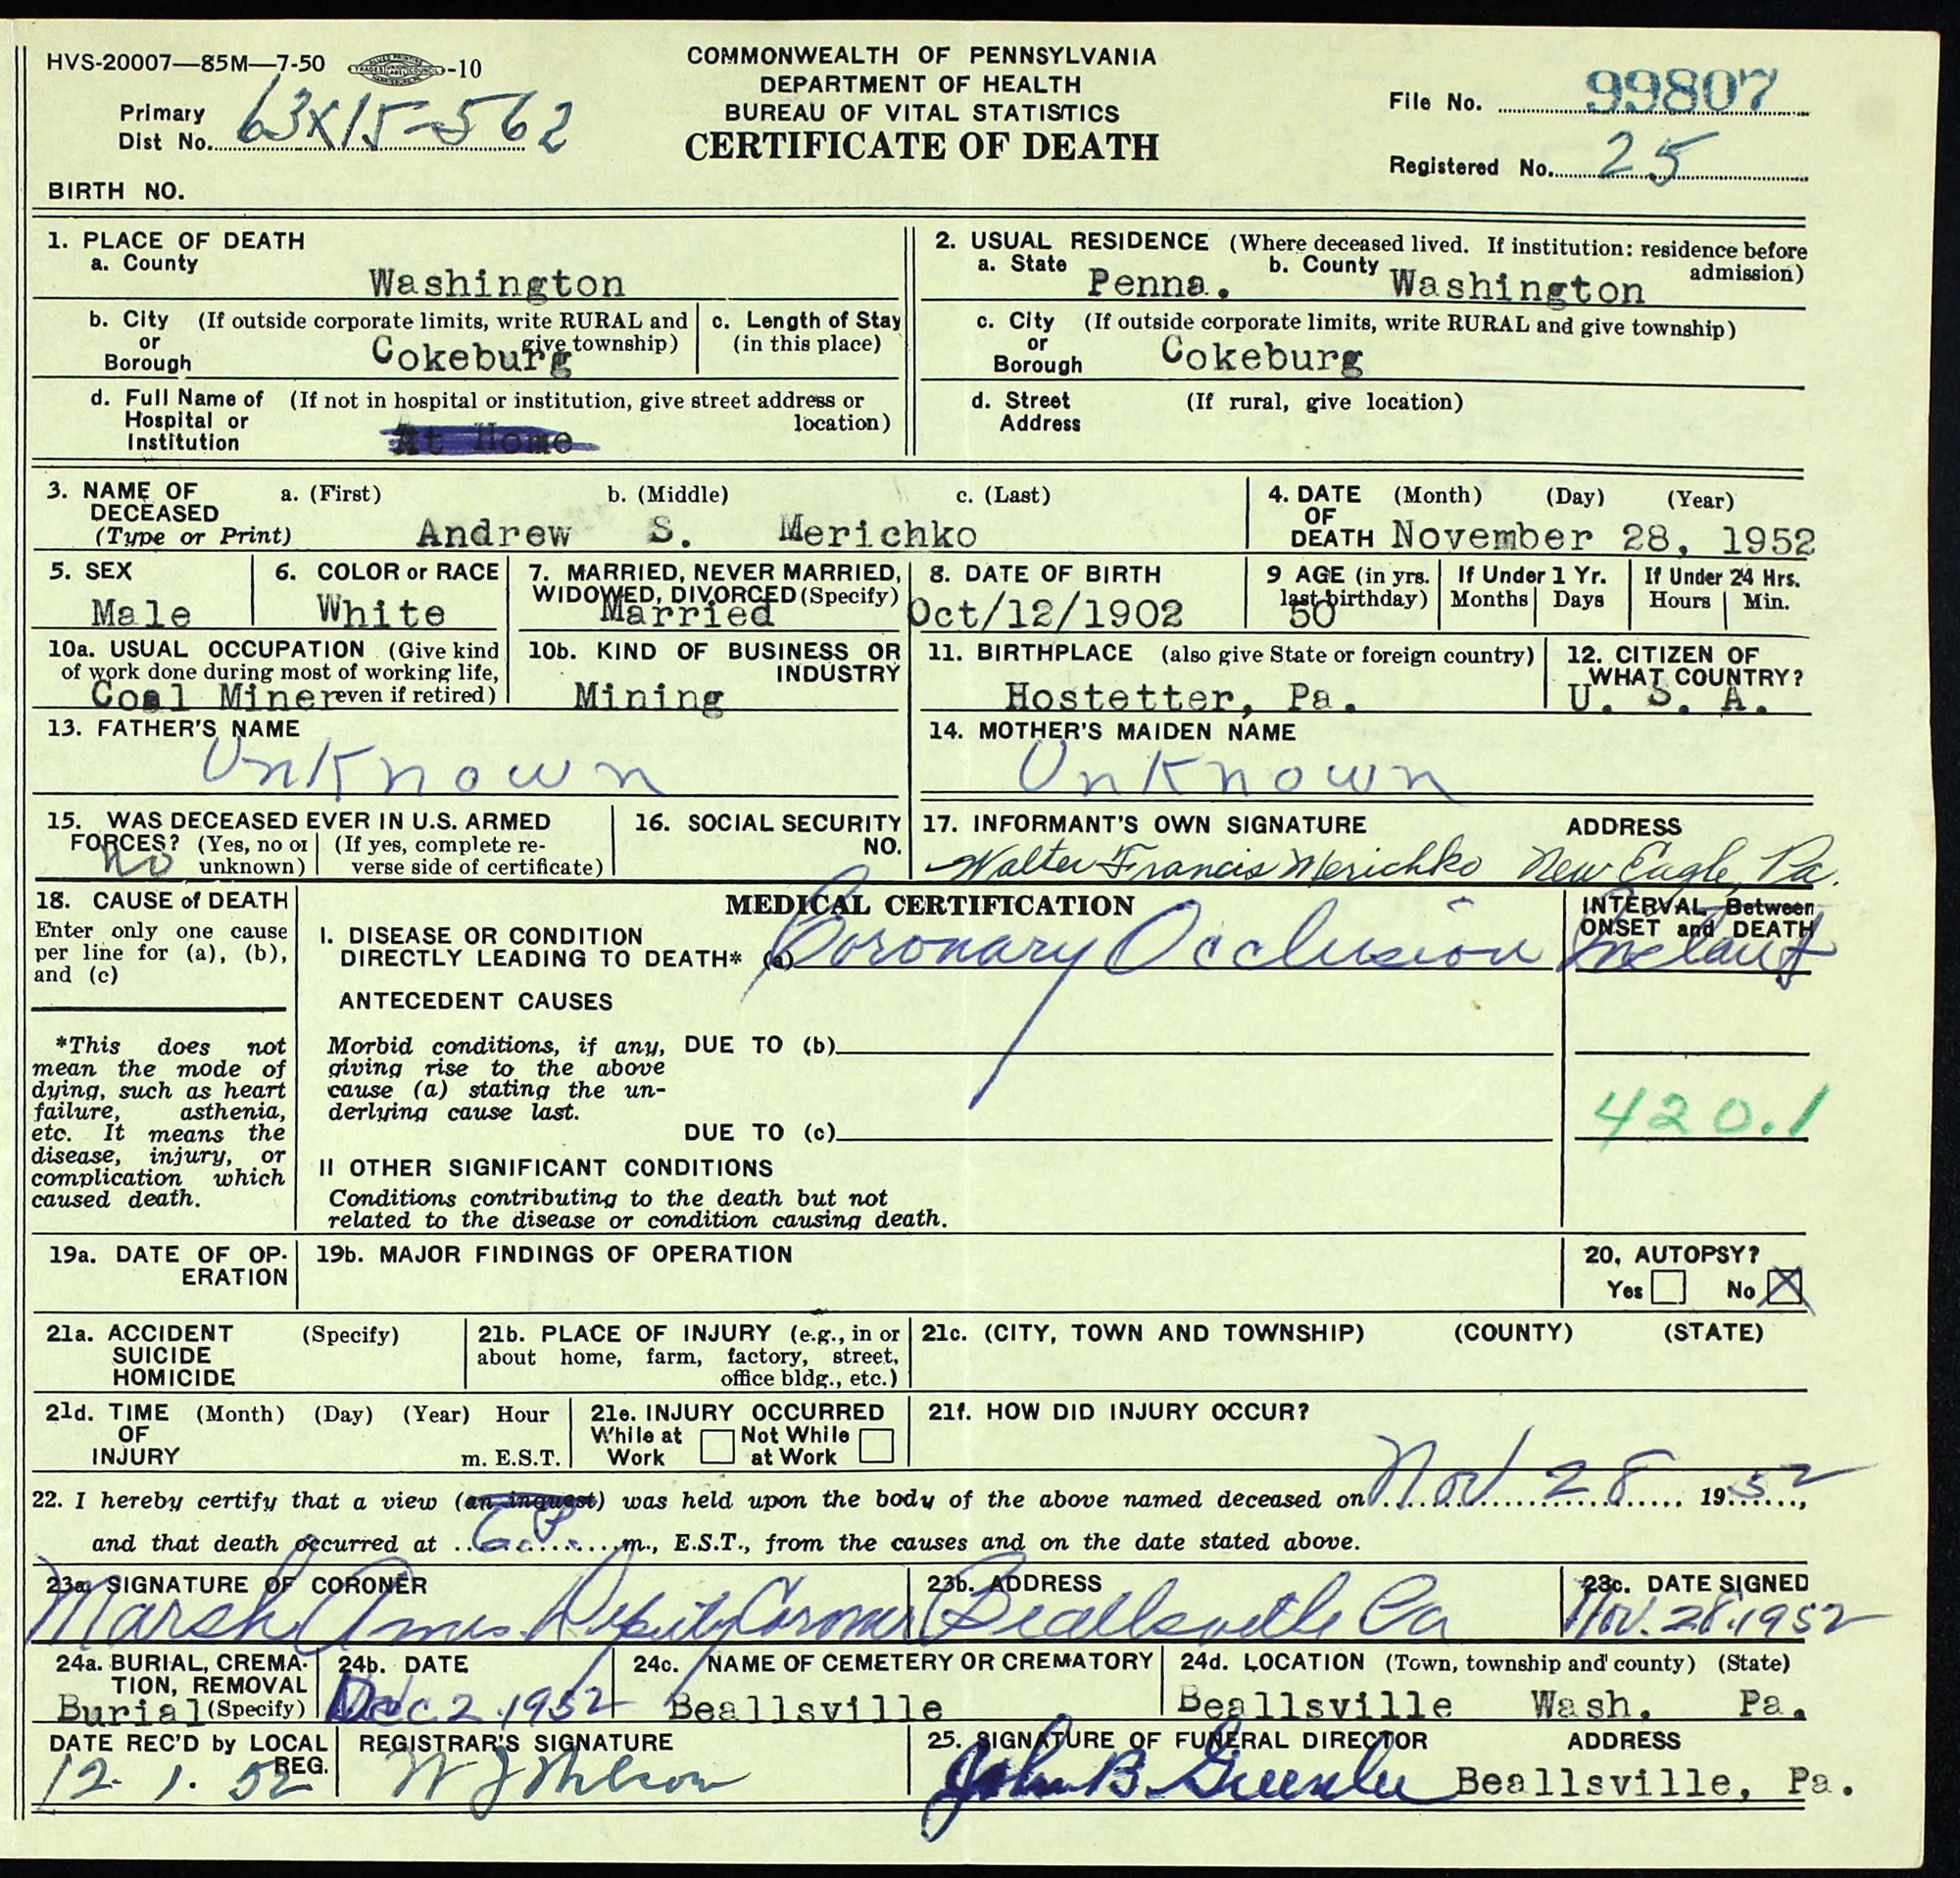 HVS-20007—85M—7-50 -10
COMMONWEALTH OF PENNSYLVANIA
DEPARTMENT OF HEALTH
BUREAU OF VITAL STATISTICS
CERTIFICATE OF DEATH
Primary
Dist No. 63X15-562
File No. 99807
Registered No. 25
BIRTH NO.
1. PLACE OF DEATH
a. County
Washington
b. City (If outside corporate limits, write RURAL and
or give township)
Borough Cokeburg
c. Length of Stay
(in this place)
d. Full Name of (If not in hospital or institution, give street address or
Hospital or location)
Institution At Home
2. USUAL RESIDENCE (Where deceased lived. If institution: residence before
admission)
a. State Penna. b. County Washington
c. City (If outside corporate limits, write RURAL and give township)
or
Borough Cokeburg
d. Street (If rural, give location)
Address
3. NAME OF a. (First) b. (Middle) c. (Last)
DECEASED
(Type or Print) Andrew S. Merichko
4. DATE (Month) (Day) (Year)
OF
DEATH November 28, 1952
5. SEX
Male
6. COLOR or RACE
White
7. MARRIED, NEVER MARRIED,
WIDOWED, DIVORCED (Specify)
Married
8. DATE OF BIRTH
Oct/12/1902
9 AGE (in yrs.
last birthday)
50
If Under 1 Yr.
Months Days
If Under 24 Hrs.
Hours Min.
10a. USUAL OCCUPATION (Give kind
of work done during most of working life,
even if retired)
Coal Miner
10b. KIND OF BUSINESS OR
INDUSTRY
Mining
11. BIRTHPLACE (also give State or foreign country)
Hostetter, Pa.
12. CITIZEN OF
WHAT COUNTRY?
U. S. A.
13. FATHER'S NAME
Unknown
14. MOTHER'S MAIDEN NAME
Unknown
15. WAS DECEASED EVER IN U.S. ARMED
FORCES? (Yes, no or (If yes, complete re-
unknown) verse side of certificate)
No
16. SOCIAL SECURITY
NO.
17. INFORMANT'S OWN SIGNATURE ADDRESS
Walter Francis Merichko New Eagle, Pa.
18. CAUSE of DEATH
Enter only one cause
per line for (a), (b),
and (c)
*This does not
mean the mode of
dying, such as heart
failure, asthenia,
etc. It means the
disease, injury, or
complication which
caused death.
MEDICAL CERTIFICATION
I. DISEASE OR CONDITION
DIRECTLY LEADING TO DEATH* (a) Coronary Occlusion
INTERVAL Between
ONSET and DEATH
Instant
ANTECEDENT CAUSES
Morbid conditions, if any, DUE TO (b)
giving rise to the above
cause (a) stating the un-
derlying cause last.
DUE TO (c)
420.1
II OTHER SIGNIFICANT CONDITIONS
Conditions contributing to the death but not
related to the disease or condition causing death.
19a. DATE OF OP-
ERATION
19b. MAJOR FINDINGS OF OPERATION
20. AUTOPSY?
Yes No X
21a. ACCIDENT (Specify)
SUICIDE
HOMICIDE
21b. PLACE OF INJURY (e.g., in or
about home, farm, factory, street,
office bldg., etc.)
21c. (CITY, TOWN AND TOWNSHIP) (COUNTY) (STATE)
21d. TIME (Month) (Day) (Year) Hour
OF
INJURY m. E.S.T.
21e. INJURY OCCURRED
While at Not While
Work at Work
21f. HOW DID INJURY OCCUR?
22. I hereby certify that a view (an inquest) was held upon the body of the above named deceased on Nov 28 1952,
and that death occurred at 6 P. m., E.S.T., from the causes and on the date stated above.
23a. SIGNATURE OF CORONER
Marsh Amos. Deputy Coroner
23b. ADDRESS
Beallsville Pa
23c. DATE SIGNED
Nov. 28. 1952
24a. BURIAL, CREMA-
TION, REMOVAL
(Specify)
Burial
24b. DATE
Dec 2. 1952
24c. NAME OF CEMETERY OR CREMATORY
Beallsville
24d. LOCATION (Town, township and county) (State)
Beallsville Wash. Pa.
DATE REC'D by LOCAL
REG.
12. 1. 52
REGISTRAR'S SIGNATURE
W J
25. SIGNATURE OF FUNERAL DIRECTOR ADDRESS
John B. Greenlee Beallsville, Pa.